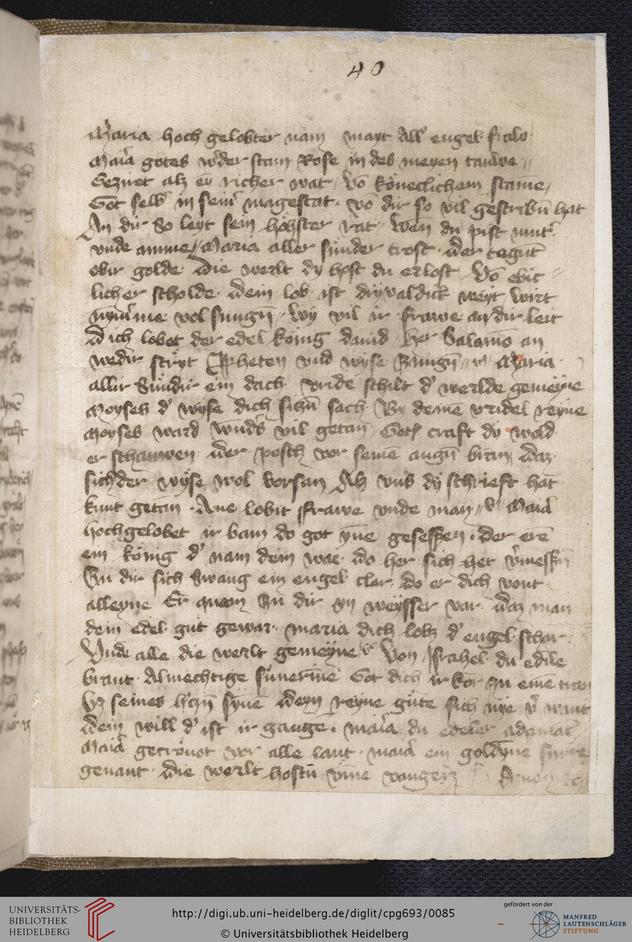 40
Maria hoch gelobter nam mayt all' engel
Maria gotes w'der stam Rose in des meyen tauwe
Geziret alz ein richer wat vo koneclichem stame
Got selb' in sein' magestat vo dir so vil geschribn hat
An dir So leyt sein hohster rat wen du pist mut'
vnde amme Maria aller sunder trost der togunt
obir golde die werlt dy host du erlost Vo ewic
licher scholde dem lob ist dryualdick weyt wirt
nym'me vol sungn wy vil ir frawe an dir leit
Dich lobet der edel konig dauid her Salamon an
wedir streyt vnd wyse Maria
allir Sundir ein dach vnde schilt d' werlde gemeyne
Moyses d' wyse dich sach By deme reyne
Moyses ward wund's vil getan Got' craft dy wold
er schauwen der posch vor seine augn bran daz
sich der wyse wol vorsan Als vns dy schrieft hat
kunt getan Aue lobit frawe vnde man Maria
hochgelobet ir bam do got yne gesessen der ere
ein konig d' nam dem wac do her sich het v'messen
Zu dir sich swang ein engel clar do er dich vant
alleyne Er quam Zu dir yn weysser var daz man
dem edel gut gewar maria dich lobt d' engel schar
Vnde alle die werlt gemeyne Von Israhel du edile
Almechtige Got dich ir kor zu eine
Vz seines h'czn syne deyn reyne gute sich nye
dem will d' ist ir gange maria du edeler adamas
Maria getrouet vor alle lant maria ein goldyne
genant die werlt hostu vmme vangen Amen
UNIVERSITÄTS-
BIBLIOTHEK
HEIDELBERG
http://digi.ub.uni-heidelberg.de/diglit/cpg693/0085
© Universitätsbibliothek Heidelberg
gefördert von der
MANFRED
LAUTENSCHLÄGER
STIFTUNG